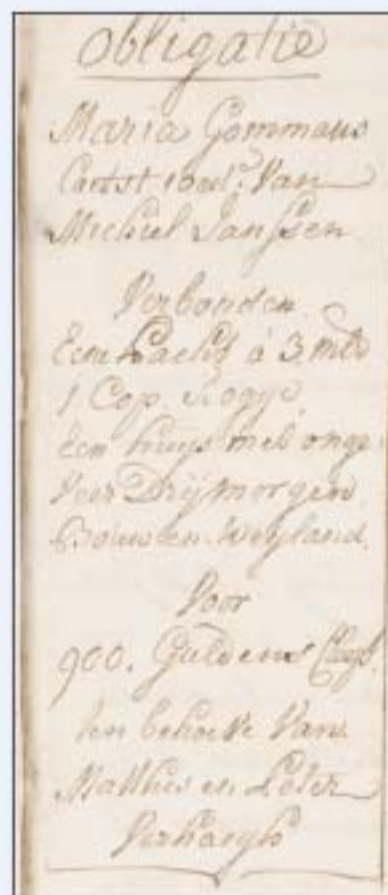 obligatie
Maria Gommans
Laetst wed.e Van
Michiel Janssen
Verbonden
Een Pacht á 3. mlr
1 Cop rogge,
Een huijs met onge
veer Drij morgen
Bouw en Weyland.
Voor
900. Guldens
ten behoeve Van
Matthis en Peter
Verhaegh